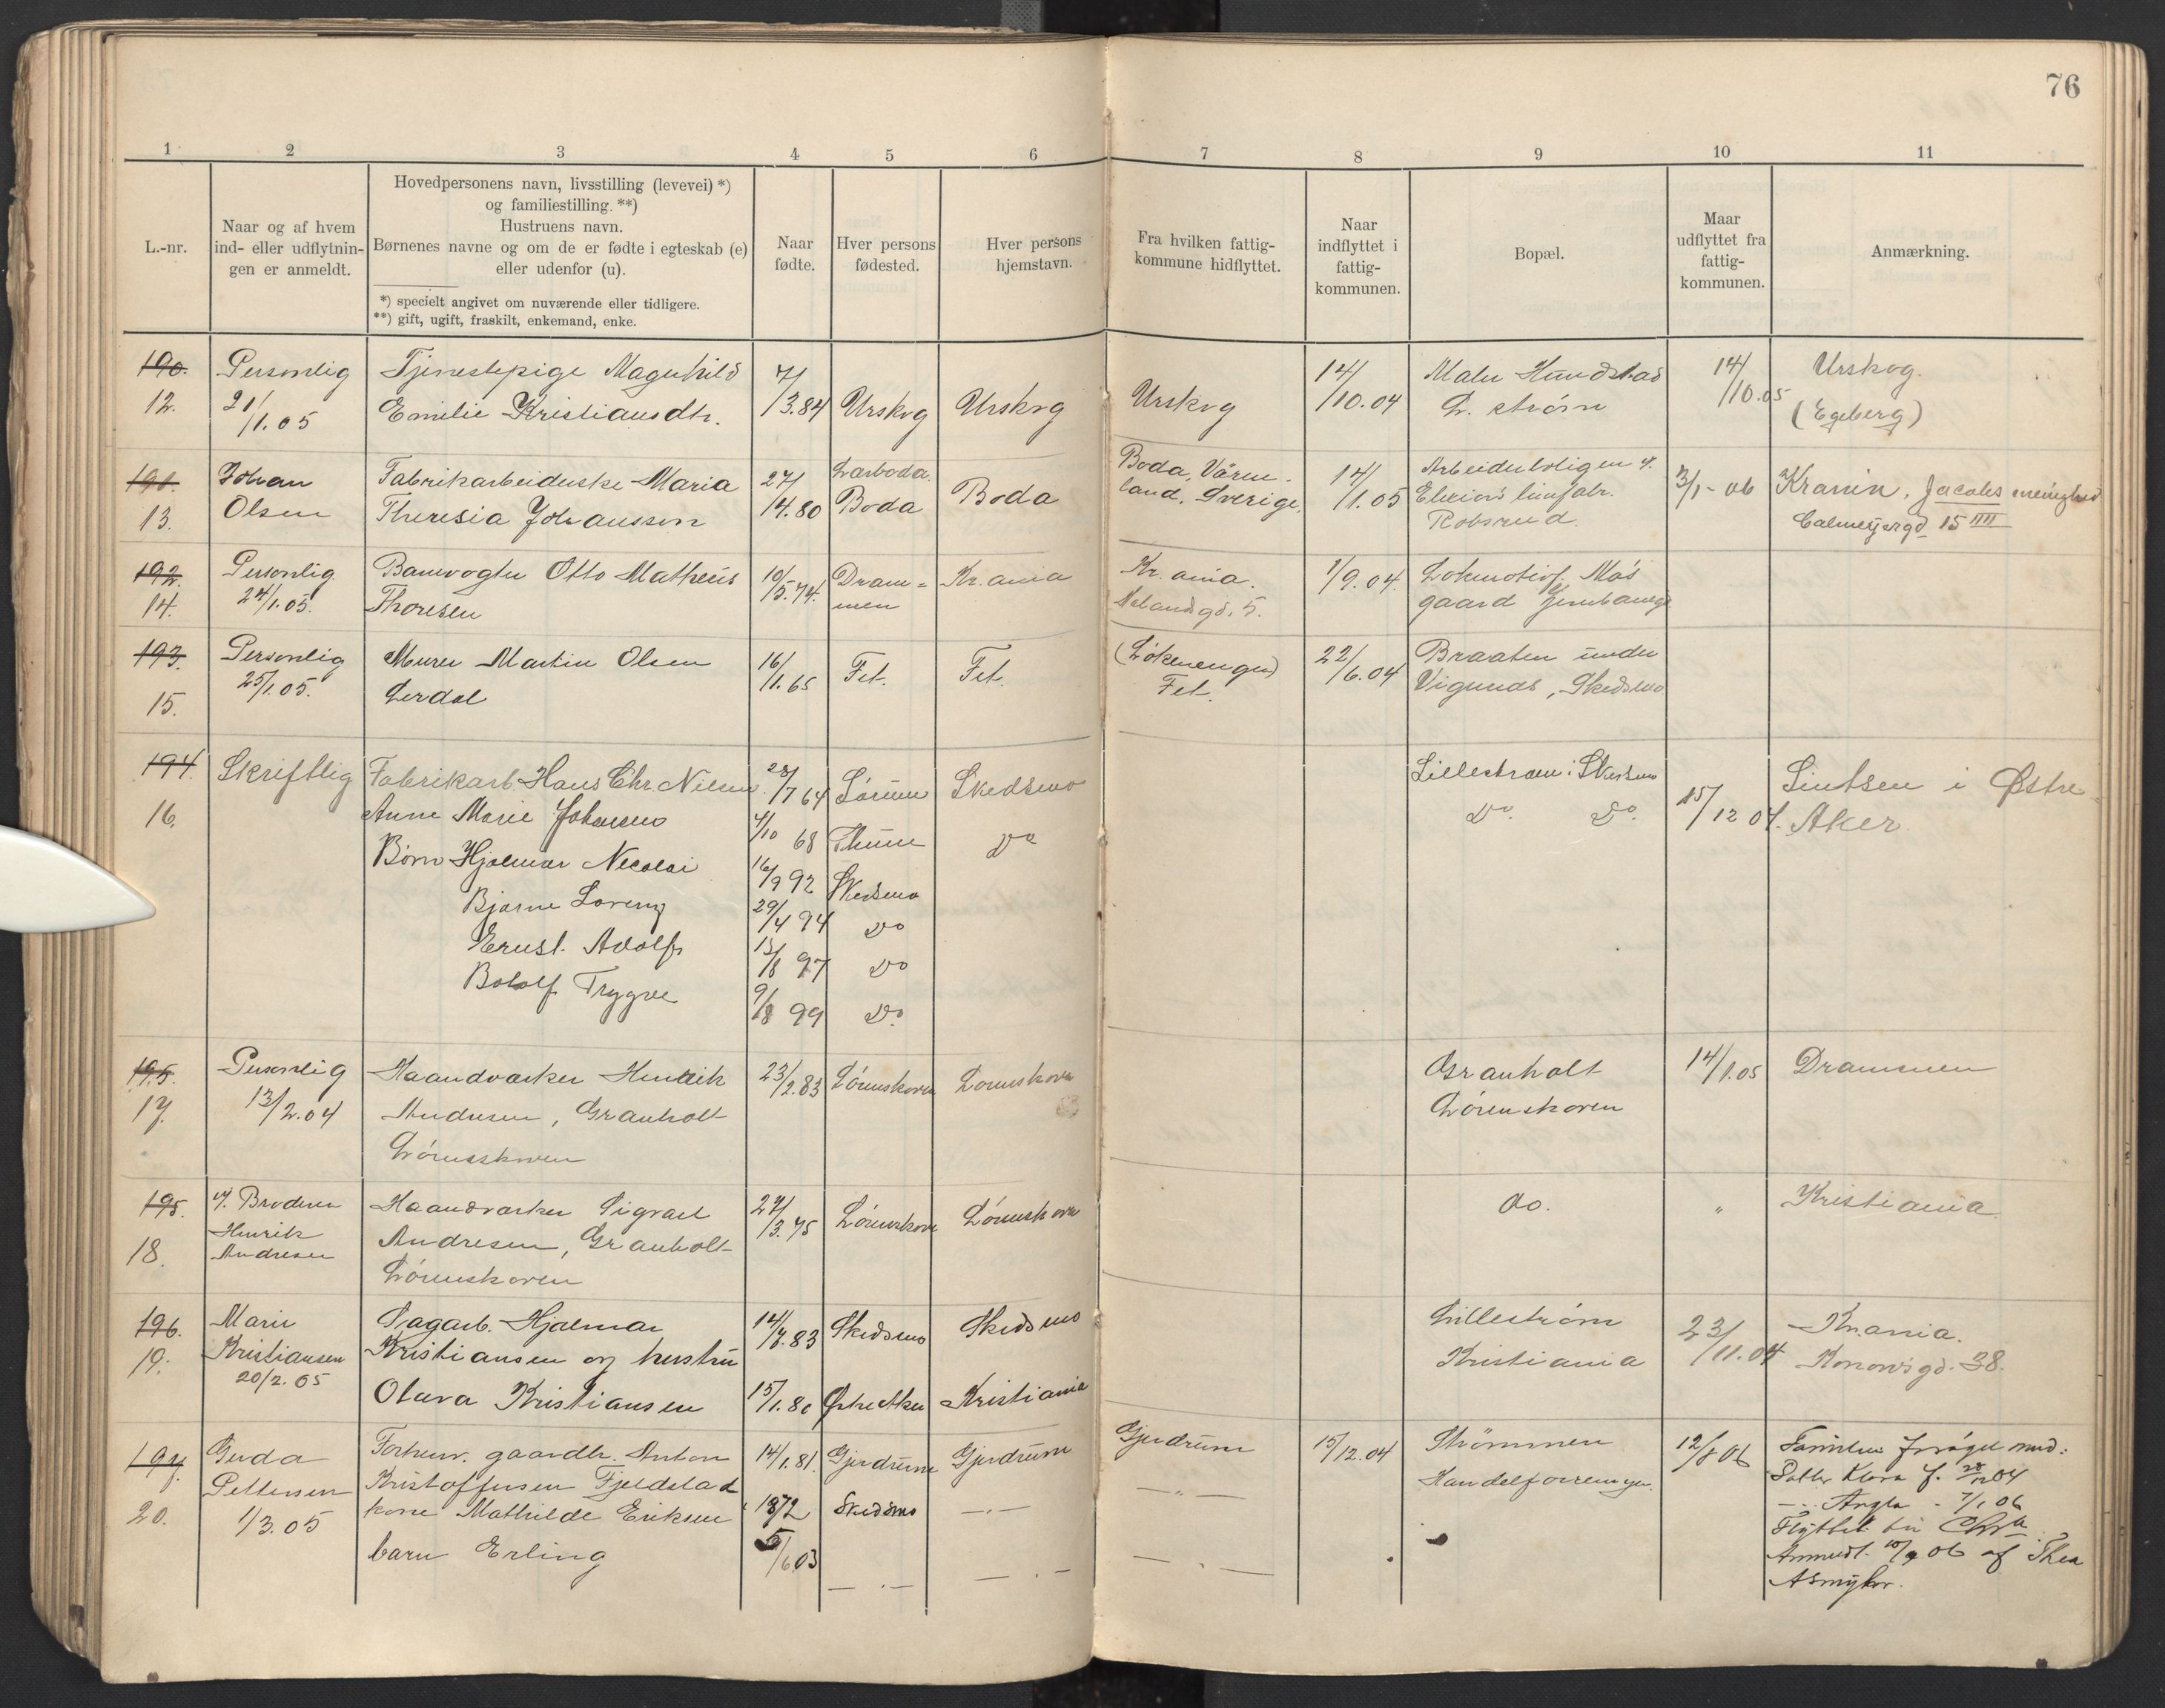 76
1 2 3 4 5 6 7 8 9 10 11
L.-nr.
Naar og af hvem
ind- eller udflytnin-
gen er anmeldt.
Hovedpersonens navn, livsstilling (levevei) *)
og familiestilling. **)
Hustruens navn.
Børnenes navne og om de er fødte i egteskab (e)
eller udenfor (u).
*) specielt angivet om nuværende eller tidligere.
**) gift, ugift, fraskilt, enkemand, enke.
Naar
fødte.
Hver persons
fødested.
Hver persons
hjemstavn.
Fra hvilken fattig-
kommune hidflyttet.
Naar
indflyttet i
fattig-
kommunen.
Bopæl.
Maar
udflyttet fra
fattig-
kommunen.
Anmærkning.
190. Personlig Tjenestepige Magnhild 7/ 14/ Malu Hundstad 14/ Urskog.
12. 21/1.05 Emilie Kristiansdtr. /3.84 Urskog Urskog Urskog /10.04 L. strøm /10.05 (Egeberg)
191. Johan Fabrikarbeiderske Maria 27/ Boda, Värm- 14/ Arbeiderboligen v.
13. Olsen Theresia Johansson /4.80 Boda Boda land. Sverige. /1.05 Robsrud. 3/1-06 Jacobs menighed
15 IIII
192. Personlig Banevogter Otto Matheus 10/5.74. Dram= Kr.ania Kr.ania. 1/9.04.
14. 24/1.05. Thoresen men 5. gaard Jernbanegd
193. Personlig Murer Martin Olsen 16/1.65 Fet. Fet. (Løkenengen) 22/6.04 Braaten under
15. 25/1.05. Lerdal Fet. Vigernes, Skedsmo
194. Skriftlig Fabrikarb. Hans Chr. Nilsen 28/7 64 Sørum Skedsmo Lillestrøm i Skedsmo 15/12 04. Sintsen i Østre
16. Anne Marie Johansen 4/10 68 Do Do. Do. Aker.
Børn Hjalmar Nicolai 16/9 92 Skedsmo
Bjarne Lorentz 29/4 94 Do
Ernst Adolf 13/8 97 Do
Botolf Trygve 9/8 99 Do.
195. Personlig Haandværker Henrik 23/2.83 Lørenskoven Lørenskoven Granholt 14/1.05 Drammen
17. 13/2.04 Andresen, Granholt Lørenskoven
Lørenskoven
195. v/. Broderen Haandværker Sigvart 27/3.75 Lørenskov Lørenskoven do. " Kristiania
18. Henrik Andresen, Granholt
Andresen Lørenskoven
196. Marie Sagarb. Hjalmar 14/7.83 Skedsmo Skedsmo Lillestrøm 23/11.04 Kr.ania.
19. Kristiansen Kristiansen og hustru Kristiania Konowsgd. 38.
20/2.05 Olava Kristiansen 15/1.80 Østre Aker Kristiania
197. Gerda Forhenv. gaardbr. Anton 14/1.81. Gjerdrum Gjerdrum Gjerdrum 15/12.04 Strømmen 12/8 06 Familien forøget med:
20. Pettersen Kristoffersen Fjeldstad Handelsforeningen. Datter Klara f. 28/12 04
1/3.05 kone Mathilde Eriksen 1872 Skedsmo —"— —"— —"— Angla - 7/1 06
barn Erling 5/6 03 —"— —"— —"— Flyttet til Chr.a
Anmeldt 10/9 06 af Thea